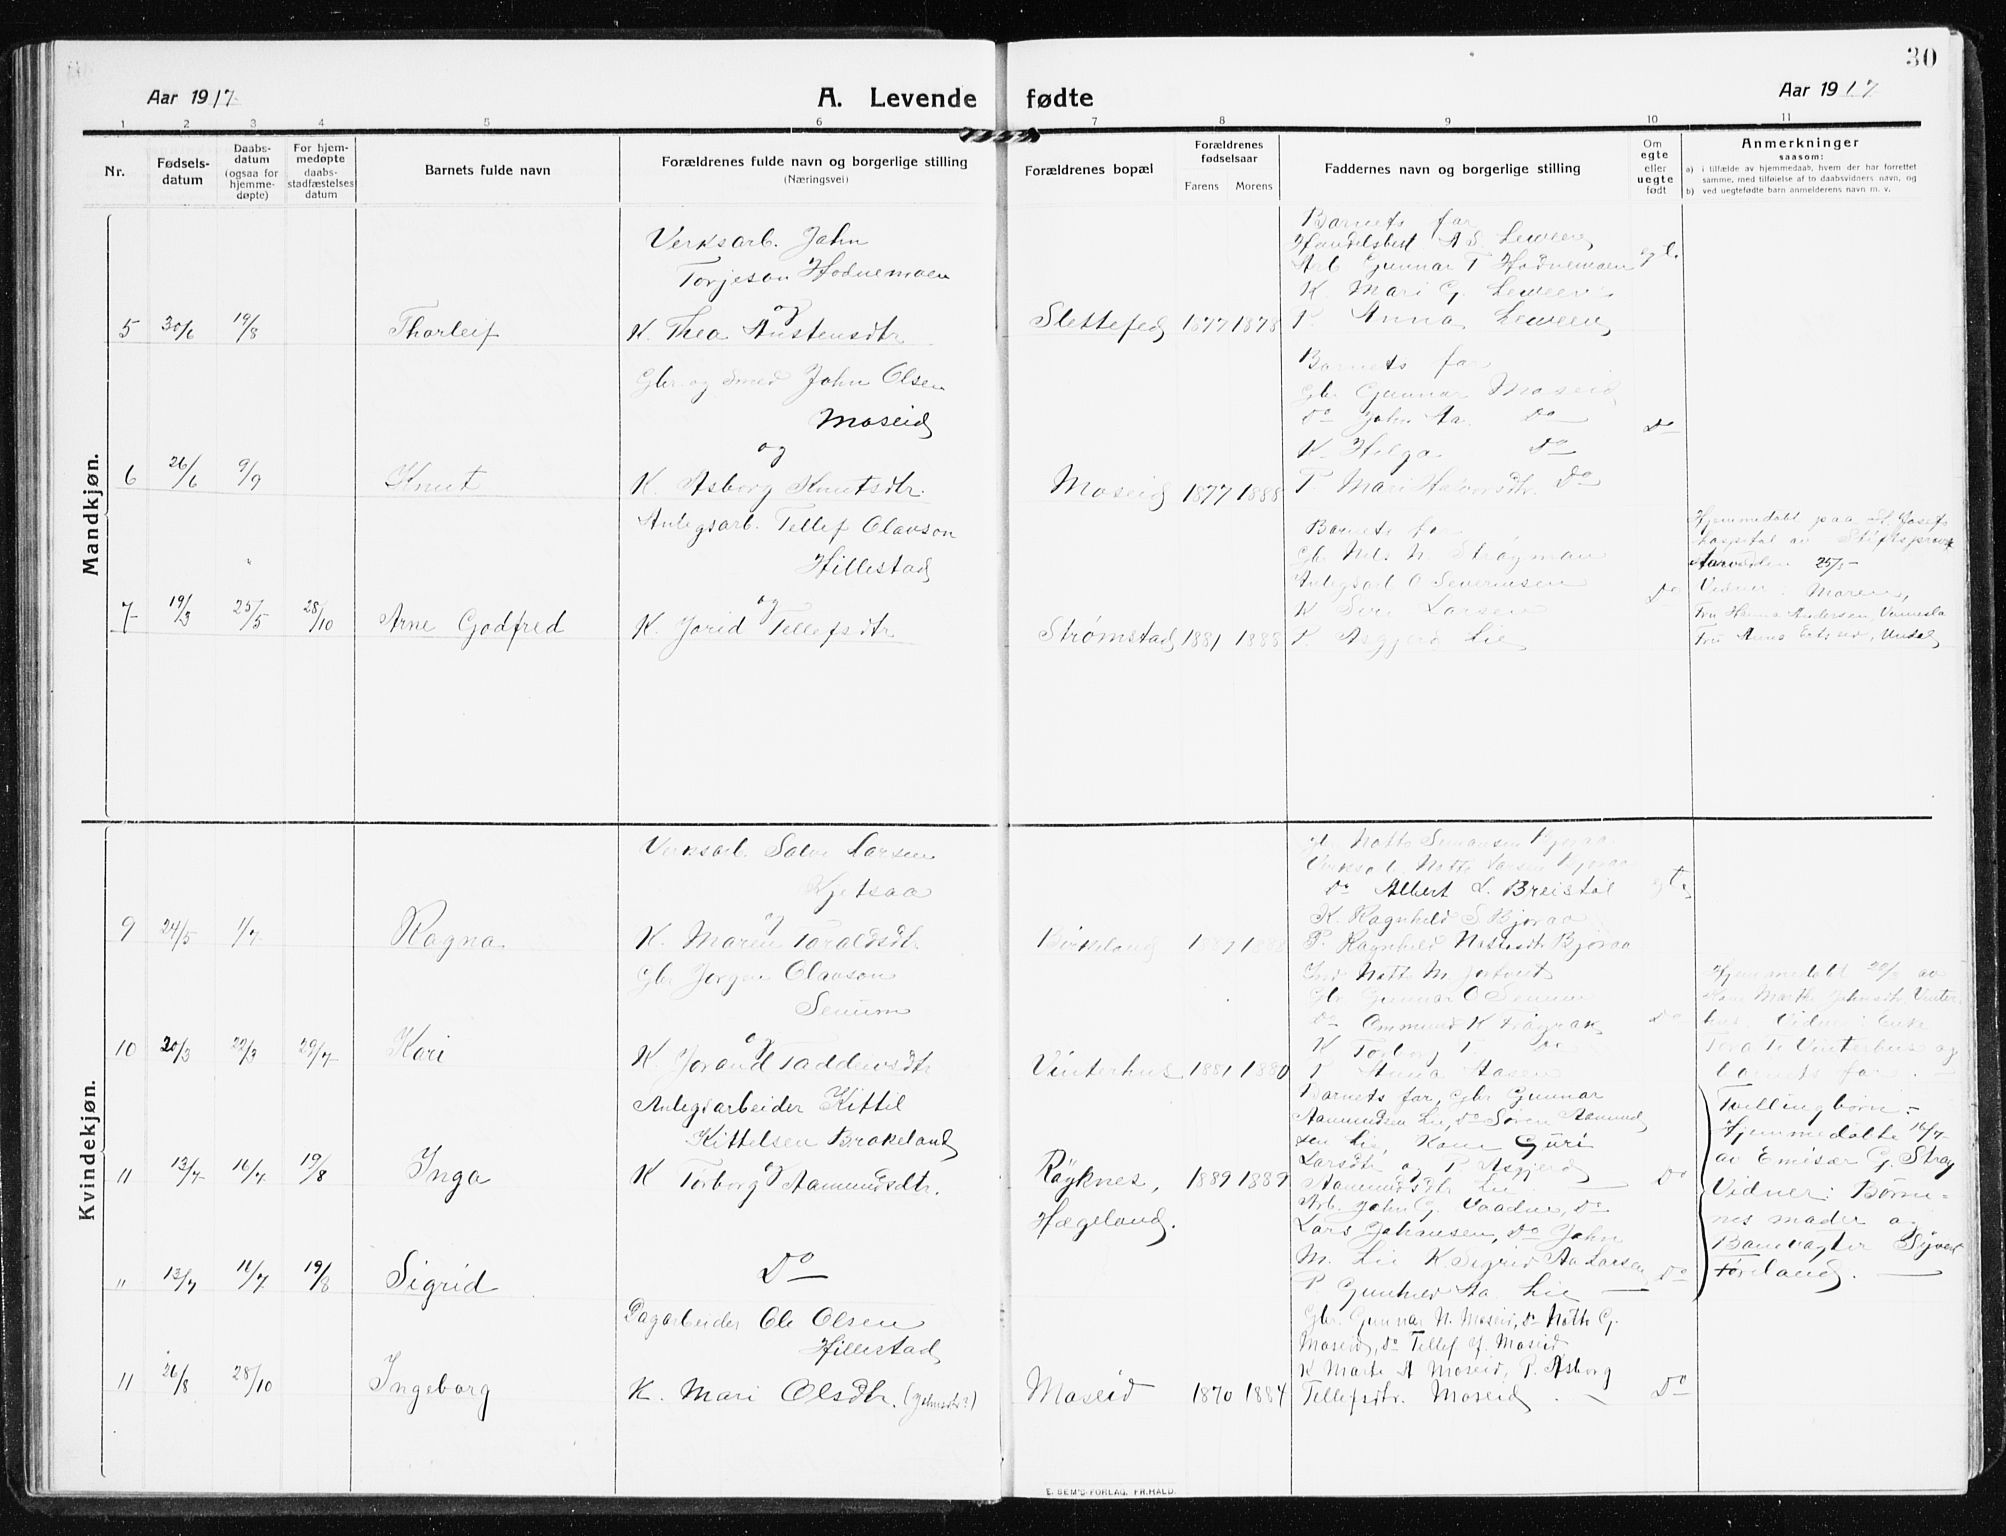 30
Aar 1917.
A. Levende fødte
Aar 1917
1 2 3 4 5 6 7 8 9 10 11
Nr.
Fødsels-
datum
Daabs-
datum
(ogsaa for
hjemme-
døpte)
For hjem-
medøpte
daabs-
stadfæstelses
datum
Barnets fulde navn
Forældrenes fulde navn og borgerlige stilling
(Næringsvei)
Forældrenes bopæl
Forældrenes
fødselsaar
Farens Morens
Faddernes navn og borgerlige stilling
Om
egte
eller
uegte
født
Anmerkninger
saasom:
a) i tilfælde av hjemmedaab, hvem der har forrettet
samme, med tilføielse af to daabsvidners navn, og
b) ved uegtefødte barn anmelderens navn m. v.
Mandkjøn.
5 30/6 19/8 Thorleif
Verksarb. John
Torjeson Hodnemoen
og
K. Thea Austensdtr
Slettefed 1877 1878
Barnets far
Handelsbest. A S. Leween
Arb Gunnar T Hodnemoen
K. Mari G. Leween
P. Anna Leween
egt.
6 26/6 9/9 Knut
Gbr. og Smed John Olsen
Moseid
og
K. Asborg Knutsdtr.
Moseid 1877 1888
Barnets far
Gbr Gunnar Moseid
Do John Aa. Do
K. Helga Do
P. Mari Halvorsdtr. Do
Do
7 19/3 25/5 28/10 Arne Godfred
Anlegsarb. Tellef Olavson
Hillestad
og
K. Jorid Tellefsdtr
Strømstad 1881 1888
Barnets far
Gbr Nels N. Strøyman
Anlegsarb O Severinsen
K Siri Larsen
P. Asgjerd Lie
Do
Hjemmedøbt paa St. Josefs
hospital av Stiftsprovst
25/5 -
Vidner: Moren,
Fru Hanna Andersen, Vennesla
Fru Anne
Kvindekjøn.
9 24/5 1/7 Ragna
Verksarb. Salve Larsen
Kjetsaa
og
K. Maren Toraldsdtr.
Birkeland 1889 1888
Gbr Notto Simonsen Bjoraa
Verksarb Notto Larsen Bjoraa
Do Albert L. Breistøl
K. Ragnhild S Bjoraa
P. Ragnhild Nottesdtr Bjoraa
egt.
10 20/3 22/3 29/7 Kari
Gbr Jørgen Olavson
Senum
og
K. Jorand Taddevsdtr
Vinterhus 1881 1880
Notto M. Jortveit
Gbr Gunnar O Senum
Do Ommund K Frøyrak
K Torborg T. Do
P Anna Aasen
Do
Hjemmedøbt 22/3 av
Kone Marthe Johnsdtr. Vinter-
hus. Vidner: Enke
Tora T. Vinterhus og
barnets far.
11 13/7 16/7 19/8 Inga
Anlegsarbeider Kittil
Kittelsen Brokeland
og
K Torborg Aamundsdtr.
Røyknes,
Hægeland.
1889 1889
Barnets far, Gbr Gunnar
Aamundsen Lie, Do Søren Aamund-
sen Lie, Kone Guri
Larsdtr og P. Asgjerd
Aamundsdtr Lie
Do
Tvillingbørn -
Hjemmedøbte 16/7
av Emisær G. Stray
Vidner: Børne-
nes moder og
Banevagter Syvert
Føreland.
" 13/7 16/7 19/8 Sigrid
Do
Arb. John G. Vaadne, Do
Lars Johansen, Do John
M. Lie K. Sigrid Aa Larsen
P. Gunhild Aa Lie
Do
11 26/8 28/10 Ingeborg
Dagarbeider Ole Olsen
Hillestad
K. Mari Olsdtr. (Johnsdtr?)
Moseid 1870 1884
Gbr. Gunnar N. Moseid, Do Notto G.
Moseid, Do Tellef J. Moseid
K Marte A Moseid, P. Asborg
Tellefsdtr. Moseid.
Do
E. SEM'S FORLAG, FR.HALD.